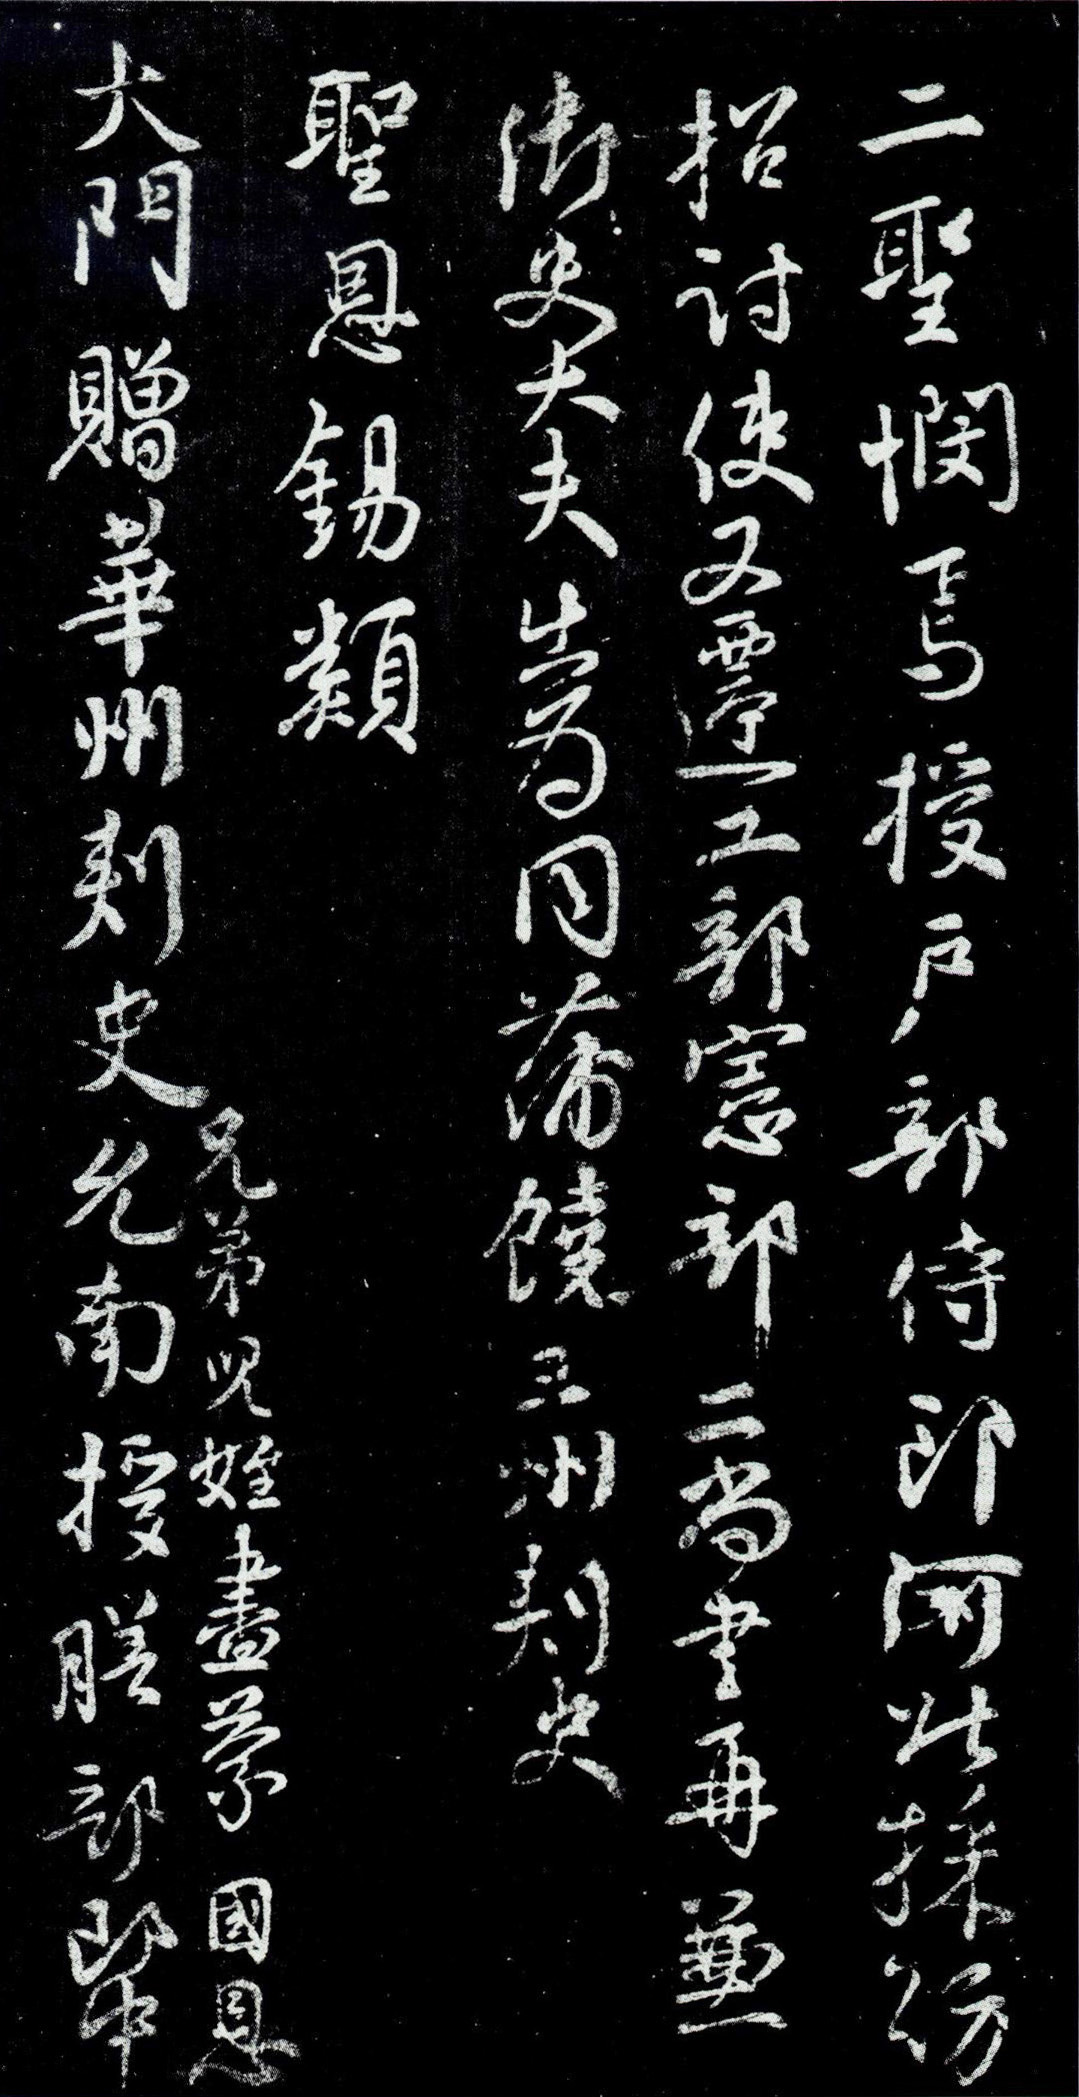 二聖憫焉授戶部侍郎河北採訪
招討使又遷工部憲部二尚書再兼
御史大夫出為同蒲饒三州刺史
聖恩錫類
兄弟兒姪盡蒙 國恩
大門贈華州刺史允南授膳部郎中